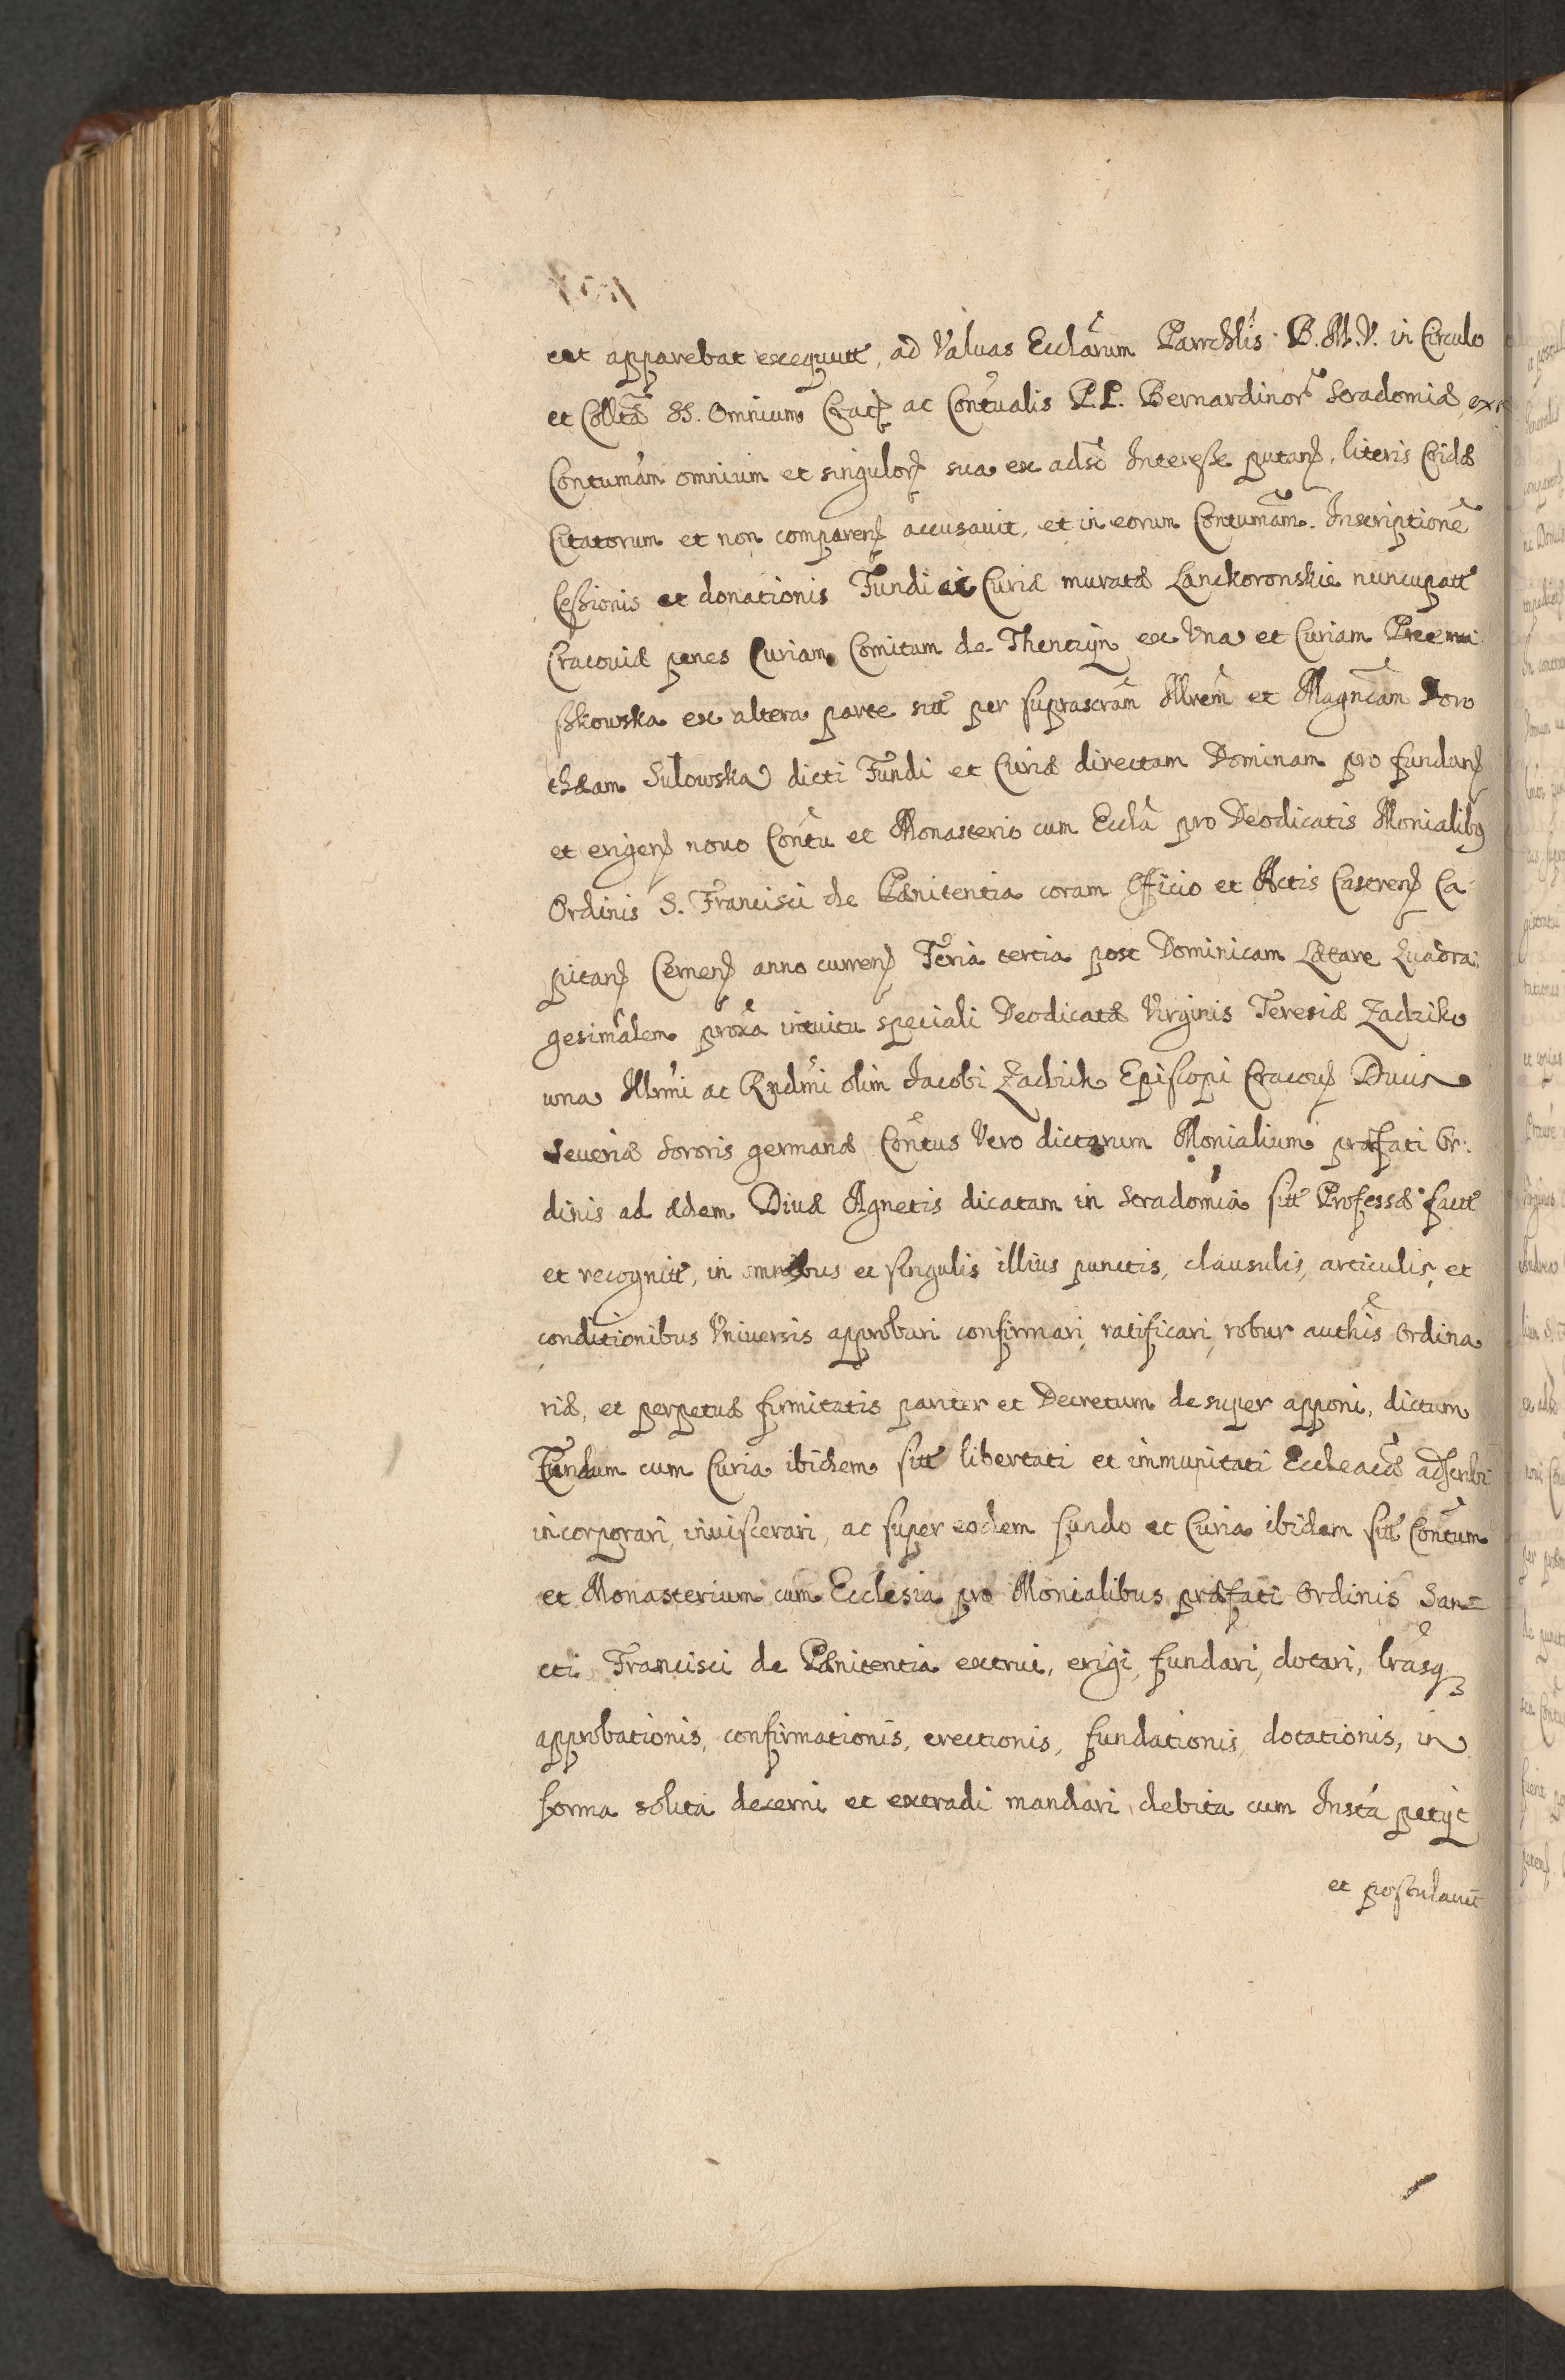 eat apparebat exequutt, ad Valuas Ecclarum Parrchlis B.M.V. in Circulo
et Collta SS. Omnium Crac ac Contualis P.P. Bernardinor Stradomiæ, ex
Contumam omnium et singulor sua ex adso Interesse putan, literis Cridæ
Citatorum et non comparen accusauit, et in eorum Contumam. Inscriptione
Cessionis et donationis Fundi et Curiæ muratæ Lanckoronskie nuncupatt
Cracouiæ penes Curiam Comitum de Thenczÿn ex Vna et Curiam
skowska ex altera parte sitt per suprascram Illrem et Magncam Doro
theam Sulowska dicti Fundi et Curiæ directam Dominam pro fundan
et erigen nouo Contu et Monasterio cum Eccla pro Deodicatis Monialibus
Ordinis S. Francisci de Pænitentia coram Officio et Actis Castren Ca-
pitan Cernen anno curren Feria tertia post Dominicam Lætare Quadra:
gesimalem proxa intuitu speciali Deodicatæ Virginis Teresiæ Zadzik
una Illrmi ac Rndmi olim Jacobi Zadzik Episcopi Cracou Ducis
Seueriæ Sororis germanæ Contus Vero dictarum Monialium præfati Or:
dinis ad ædem Diuæ Agnetis dicatam in Stradomia sitt Professæ factt
et recognitt, in omnibus et singulis illius punctis, clausulis, articulis, et
conditionibus Vniuersis approbari confirmari, ratificari, robur authis Ordina
riæ, et perpetuæ firmitatis pariter et Decretum desuper apponi, dictum
Fundum cum Curia ibidem sitt libertati et immunitati Eccleacæ adscribi
incorporari, inuiscerari, ac super eodem fundo et Curia ibidem sitt Contum
et Monasterium cum Ecclesia pro Monialibus præfati Ordinis San=
cti Francisci de Pænitentia extrui, erigi, fundari, dotari, lrasq
approbationis, confirmationis, erectionis, fundationis, dotationis, in
forma solita decerni et extradi mandari debita cum Insta petijt
et postulauit